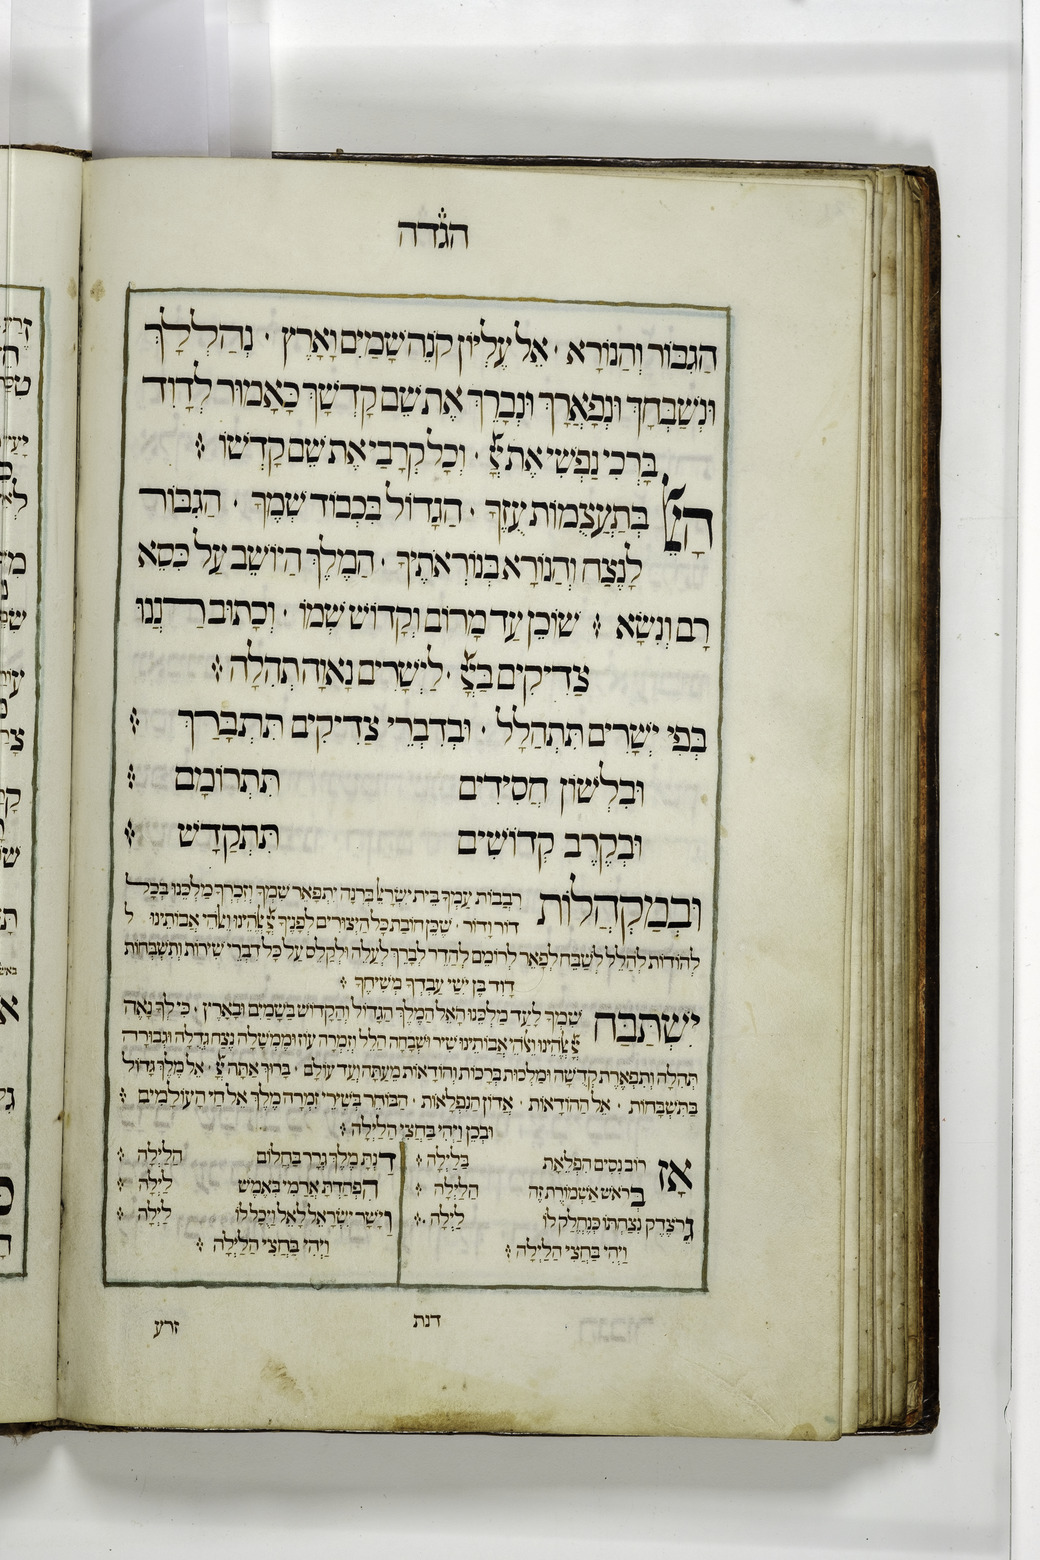 הגדה
הַגִבּוֹר וְהַנּוֹרָא · אֵל עֶלְיוֹן קוֹנֵה שָׁמַיִם וָאָרֶץ · נְהַלְלָךְ
וּנְשַׁבְּחָךְ וּנְפָאֲרָךְ וּנְבָרֵךְ אֶת שֵׁם קָדְשָׁךְ כָּאָמוּר לְדָוִד
בָּרְכִי נַפְשִׁי אֶת · וְכָל קְרָבַי אֶת שֵׁם קָדְשׁוֹ
הָאֵל בְּתַעֲצֻמוֹת עֻזֶּךָ · הַגָּדוֹל בִּכְבוֹד שְׁמֶךָ · הַגִּבּוֹר
לָנֶצַח וְהַנּוֹרָא בְּנוֹרְאֹתֶיךָ · הַמֶּלֶךְ הַיּוֹשֵׁב עַל כִּסֵּא
רָם וְנִשָּׂא שׁוֹכֵן עַד מָרוֹם וְקָדוֹשׁ שְׁמוֹ · וְכָתוּב רַנְּנוּ
צַדִיקִים · לַיְשָׁרִים נָאוָה תְהִלָּה
בְּפִי יְשָׁרִים תִּתְהַלָּל · וּבְדִבְרֵי צַדִּיקִים תִּתְבָּרַךְ
וּבִלְשׁוֹן חֲסִידִים תִּתְרוֹמָם
וּבְקֶרֶב קְדוֹשִׁים תִּתְקַדָּשׁ
וּבְמַקְהֲלוֹת רִבְבוֹת עַמְּךָ בֵּית יִשְׂרָאֵל בְּרִנָּה יִתְפָּאֵר שִׁמְךָ וְזִכְרְךָ מַלְכֵּנוּ בְּכָל
דּוֹר וָדוֹר · שֶׁכֵּן חוֹבַת כָּל הַיְצוּרִים לְפָנֶיךָ אֲבוֹתֵינוּ
לְהוֹדוֹת לְהַלֵּל לְשַׁבֵּחַ לְפָאֵר לְרוֹמֵם לְהַדֵּר לְבָרֵךְ לְעַלֵּה וּלְקַלֵּס עַל כָּל דִּבְרֵי שִׁירוֹת וְתִשְׁבְּחוֹת
דָוִד בֶּן יִשַׁי עַבְדְּךָ מְשִׁיחֶךָ
יִשְׁתַּבַּח שִׁמְךָ לָעַד מַלְכֵּנוּ הָאֵל הַמֶּלֶךְ הַגָּדוֹל וְהַקָּדוֹשׁ בַּשָּׁמַיִם וּבָאָרֶץ · כִּי לְךָ נָאֶה
אֲבוֹתֵינוּ שִׁיר וּשְׁבָחָה הַלֵּל וְזִמְרָה עוֹז וּמֶמְשָׁלָה נֶצַח גְּדֻלָּה וּגְבוּרָה
תְּהִלָּה וְתִפְאֶרֶת קְדֻשָּׁה וּמַלְכוּת בְּרָכוֹת וְהוֹדָאוֹת מֵעַתָּה וְעַד עוֹלָם · בָּרוּךְ אַתָּה · אֵל מֶלֶךְ גָּדוֹל
בַּתִּשְׁבָּחוֹת · אֵל הַהוֹדָאוֹת · אֲדוֹן הַנִּפְלָאוֹת · הַבּוֹחֵר בְּשִׁירֵי זִמְרָה מֶלֶךְ אֵל חַי הָעוֹלָמִים
וּבְכֵן וַיְהִי בַּחֲצִי הַלַּיְלָה
אָז רוֹב נִסִּים הִפְלֵאתָ בַּלַּיְלָה
בְּרֹאשׁ אַשְׁמוֹרֶת זֶה הַלַּיְלָה
גֵּר צֶדֶק נִצַּחְתּוֹ כְּנֶחֱלַק לוֹ לַיְלָה
וַיְהִי בַּחֲצִי הַלַּיְלָה
דַּנְתָּ מֶלֶךְ גְּרָר בַּחֲלוֹם הַלַּיְלָה
הִפְחַדְתָּ אֲרַמִּי בְּאֶמֶשׁ לַיְלָה
וַיָּשַׂר יִשְׂרָאֵל לָאֵל וַיּוּכַל לוֹ לַיְלָה
וַיְהִי בַּחֲצִי הַלַּיְלָה
דנת
זרע